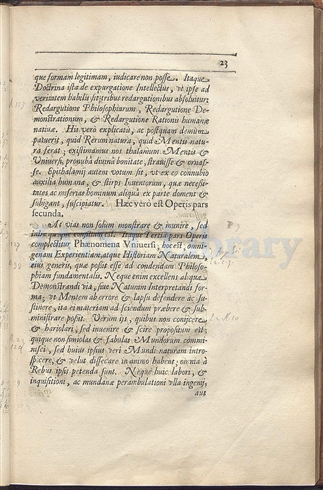 23
que formam legitimam, indicare non posse. Itaque
Doctrina ista de expurgatione Intellectus, vt ipse ad
veritatem habilis sit, tribus redargutionibus absoluitur;
Redargutione Philosophiarum, Redargutione De-
monstrationum, & Redargutione Rationis humanæ
natiuæ. His verò explicatis, ac postquàm demùm
patuerit, quid Rerum natura, quid Mentis natu-
ra ferat; existimamus nos thalamum Mentis &
Vniuersi, pronubâ diuinâ bonitate, strauisse & ornas-
se. Epithalamij autem votum sit, vt ex eo connubio
auxilia humana, & stirps Inuentorum, quæ necessi-
tates ac miserias hominum aliquâ ex parte doment &
subigant, suscipiatur. Hæc verò est Operis pars
secunda.
At vias non solùm monstrare & munire, sed
inire quoque consilium est. Itaque Tertia pars Operis
complectitur Phænomena Vniuersi; hoc est, omni-
genam Experientiam, atque Historiam Naturalem,
eius generis, quæ possit esse ad condendam Philoso-
phiam fundamentalis. Neque enim excellens aliqua
Demonstrandi via, siue Naturam Interpretandi for-
ma, vt Mentem ab errore & lapsu defendere ac su-
stinere, ita ei materiam ad sciendum præbere & sub-
ministrare possit. Verùm ijs, quibus non conijcere
& hariolari, sed inuenire & scire propositum est;
quique non simiolas & fabulas Mundorum commi-
nisci, sed huius ipsius veri Mundi naturam intro-
spicere, & velut dissecare in animo habent; omnia à
Rebus ipsis petenda sunt. Neque huic labori, &
inquisitioni, ac mundanæ perambulationi vlla ingenij,
aut